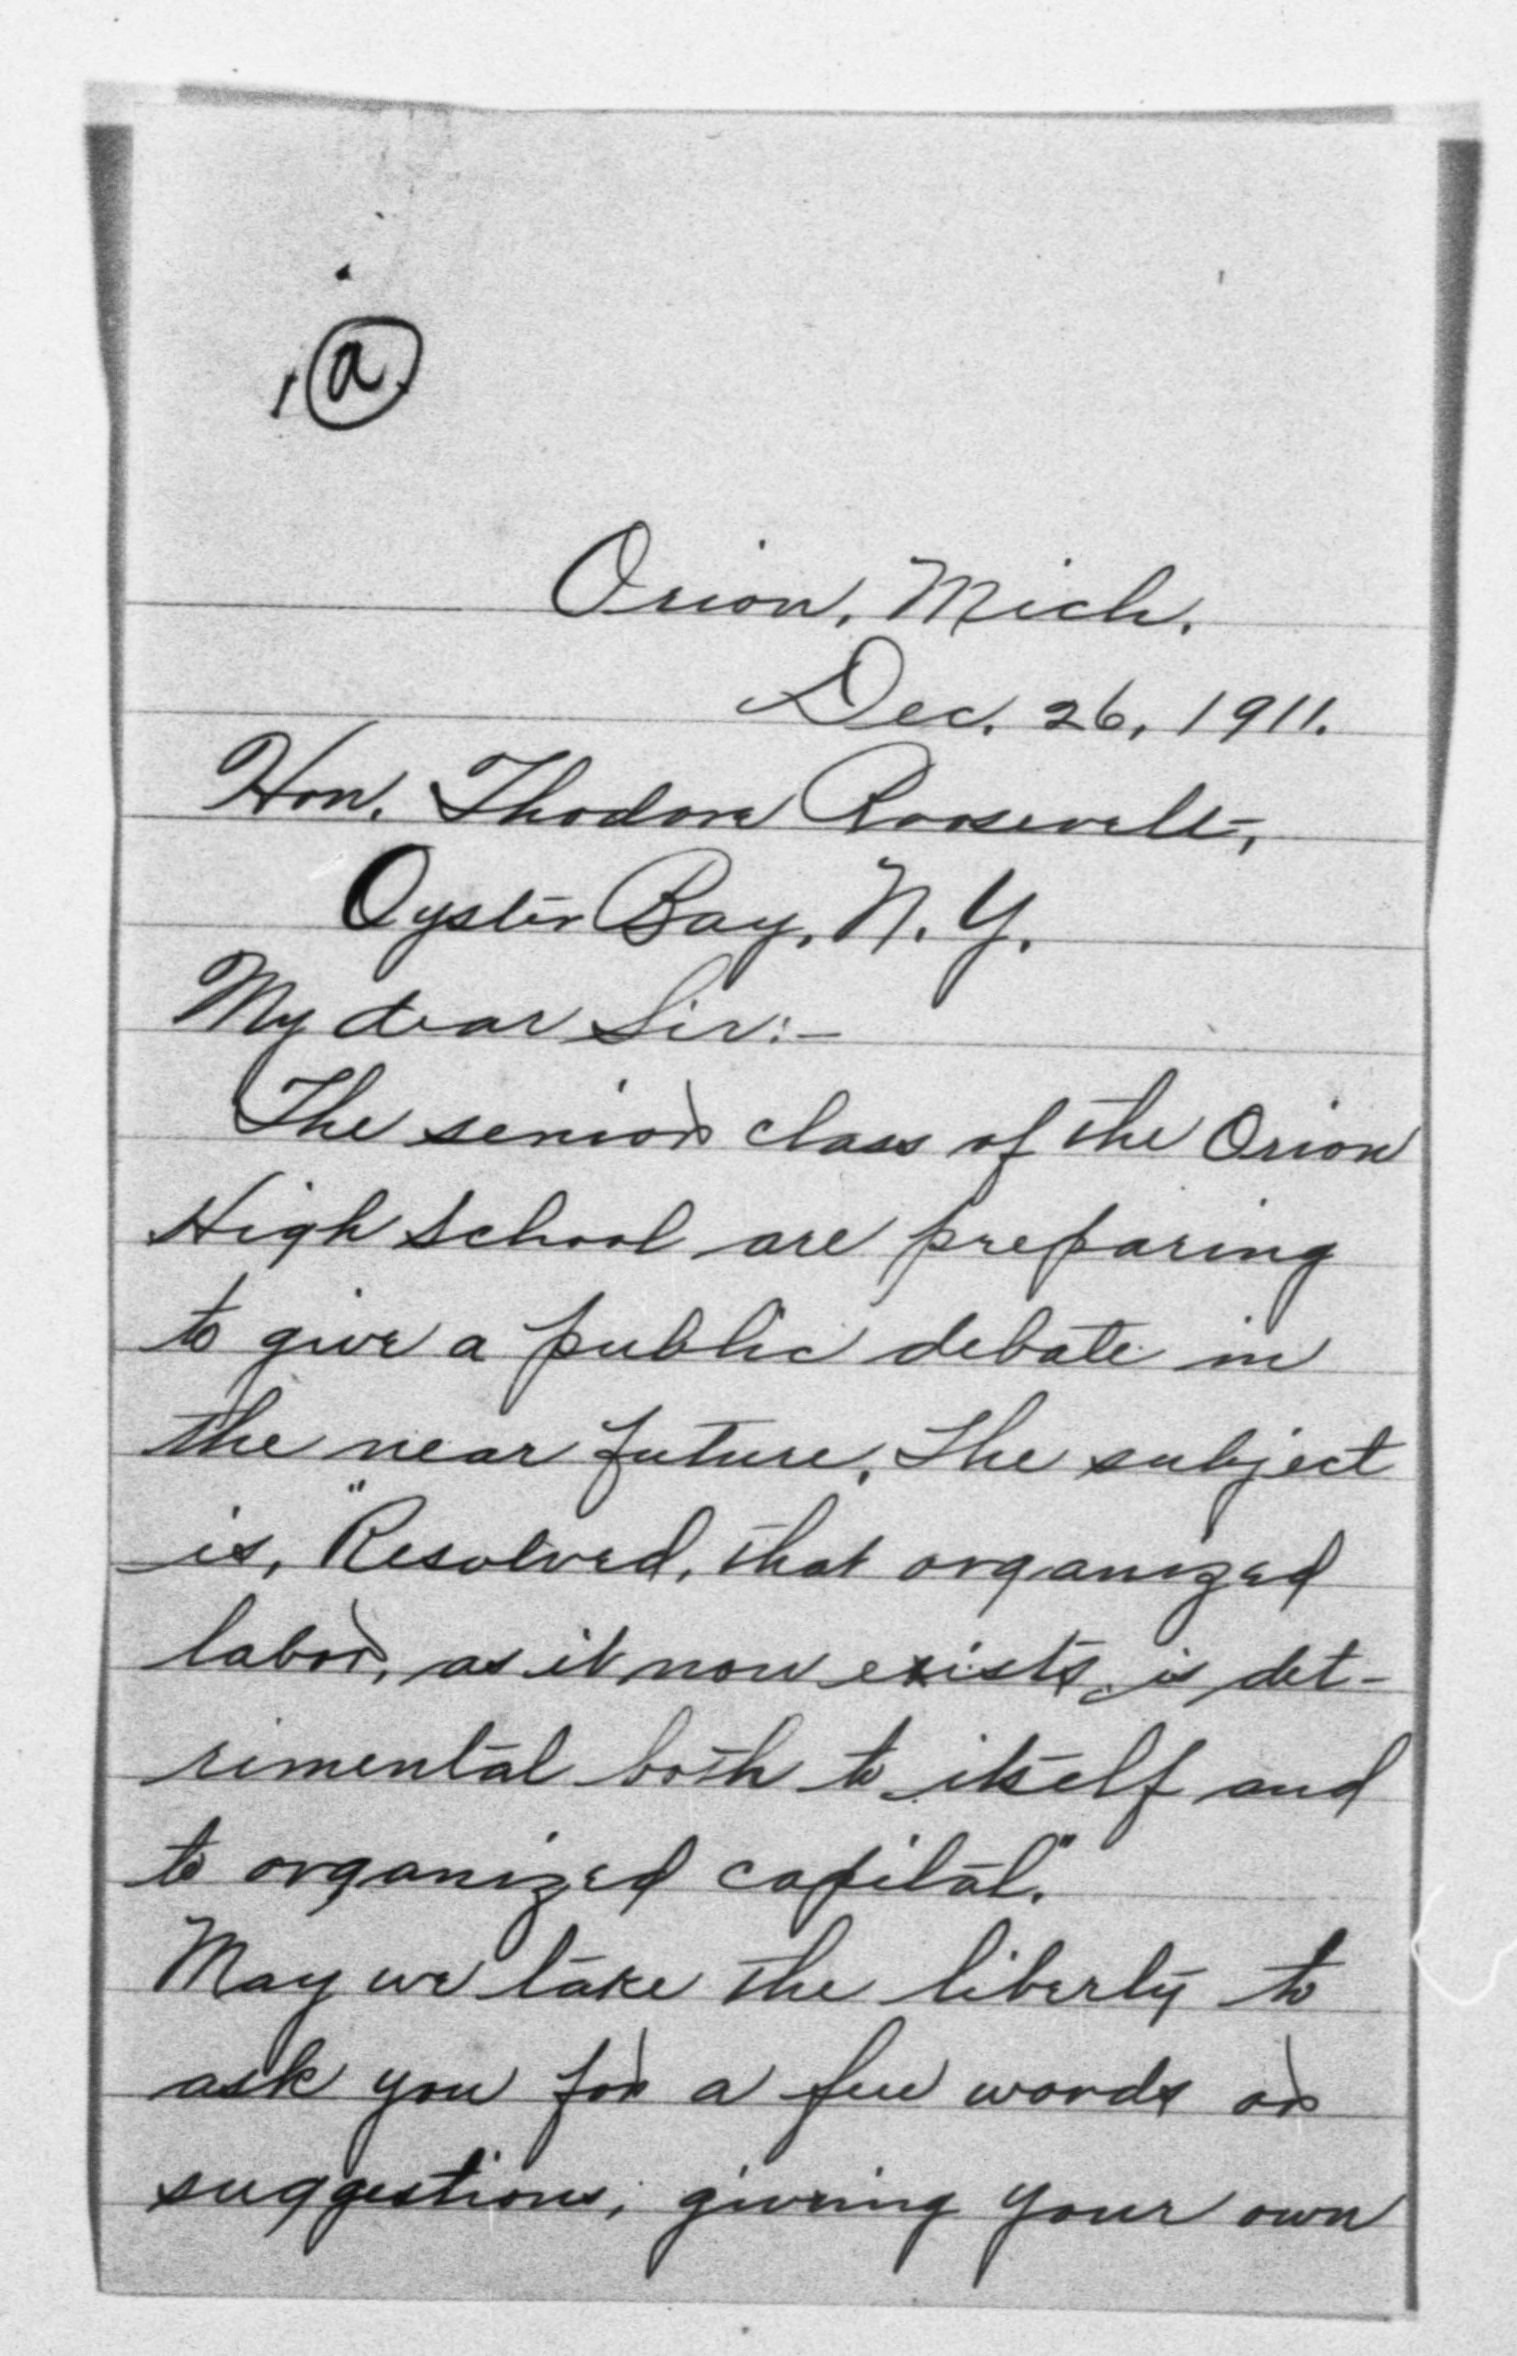 a
Orion, Mich.
Dec. 26, 1911.
Hon. Thodore Roosevelt,
Oyster Bay, N. Y.
My dear Sir:-
The senior class of the Orion
High School are preparing
to give a public debate in
the near future. The subject
is, "Resolved, that organized
labor, as it now exists, is det-
rimental both to itself and
to organized capital."
May we take the liberty to
ask you for a few words or
suggestions, giving your own